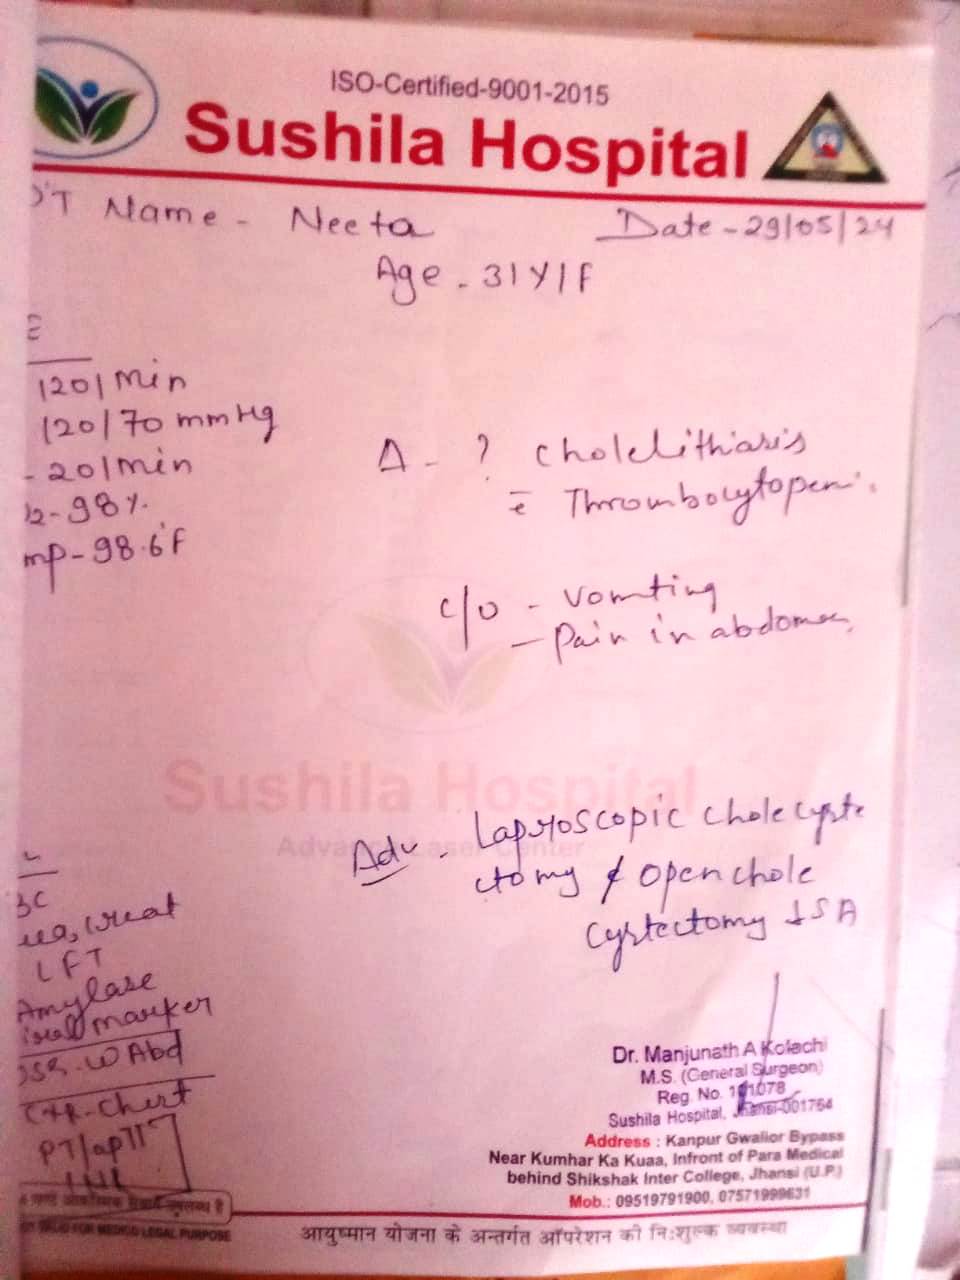 ISO-Certified-9001-2015
Sushila Hospital
PT Name - Neeta
Date - 29/05/24
Age - 31Y/F
E
120/min
120/70 mmHg
- 20/min
2-98%.
mp-98.6°F
Δ - ? Cholelithiasis
c̄ Thrombocytopeni
c/o - vomting
- Pain in abdomen
Sushila Hospital
Advance Laser Center
Adv - Laproscopic cholecyste
ctomy & open chole
cystectomy ↓SA
BC
ea, Creat
LFT
Amylase
iral marker
W Abd
Chest
PT/apTT
Dr. Manjunath A Kolachi
M.S. (General Surgeon)
Reg. No. 101078
Sushila Hospital, Jhansi-001764
Address : Kanpur Gwalior Bypass
Near Kumhar Ka Kuaa, Infront of Para Medical
behind Shikshak Inter College, Jhansi (U.P.)
Mob.: 09519791900, 07571999631
FOR MEDICO LEGAL PURPOSE
आयुष्मान योजना के अन्तर्गत ऑपरेशन की निःशुल्क व्यवस्था